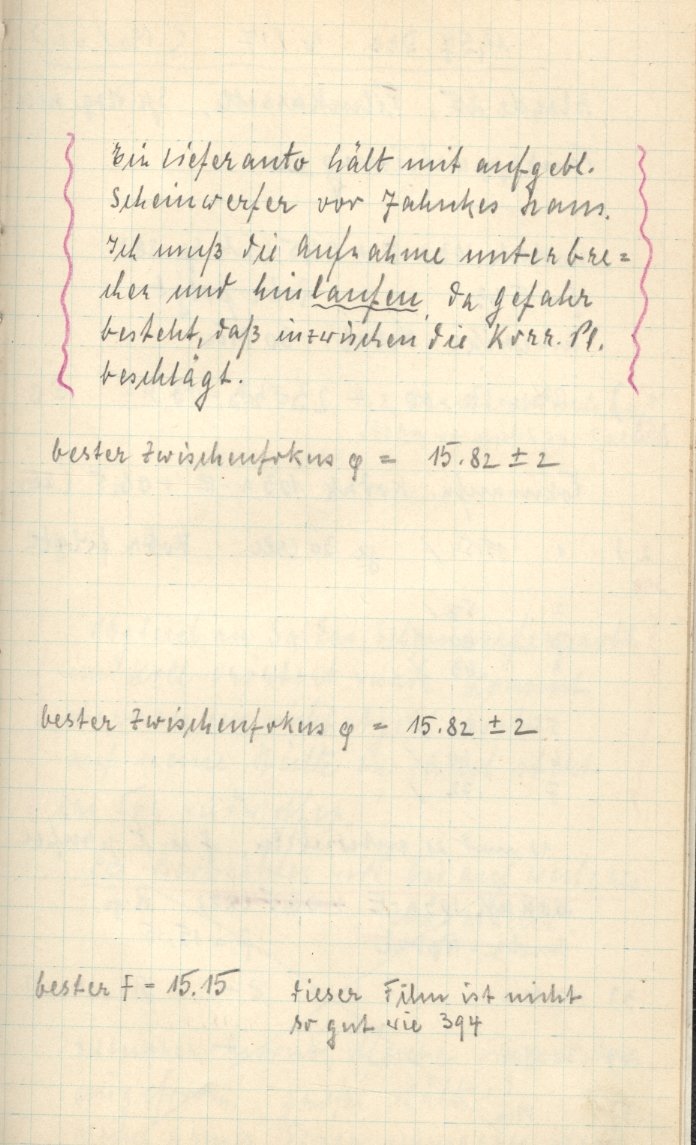 Ein Lieferauto hält mit aufgebl.
Scheinwerfer vor Jahnkes Haus.
Ich muß die Aufnahme unterbre=
chen und hinlaufen, da Gefahr
besteht, daß inzwischen die Korr. Pl.
beschlägt.
bester Zwischenfokus φ = 15.82 ± 2
bester Zwischenfokus φ = 15.82 ± 2
bester F = 15.15 Dieser Film ist nicht
so gut wie 394